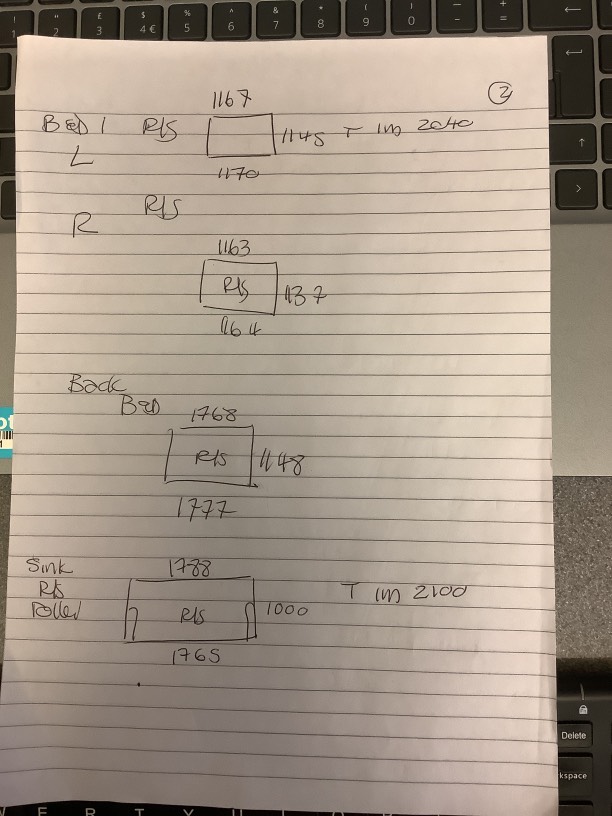 ②
1167
BED 1 R/S 1145 T 1m 2040
L
1170
R/S
R
1163
R/S 1137
1164
Back
BED
1768
R/S 1148
1777
Sink
1788
R/S
T 1m 2100
R/S 1000
1765
Delete
kspace